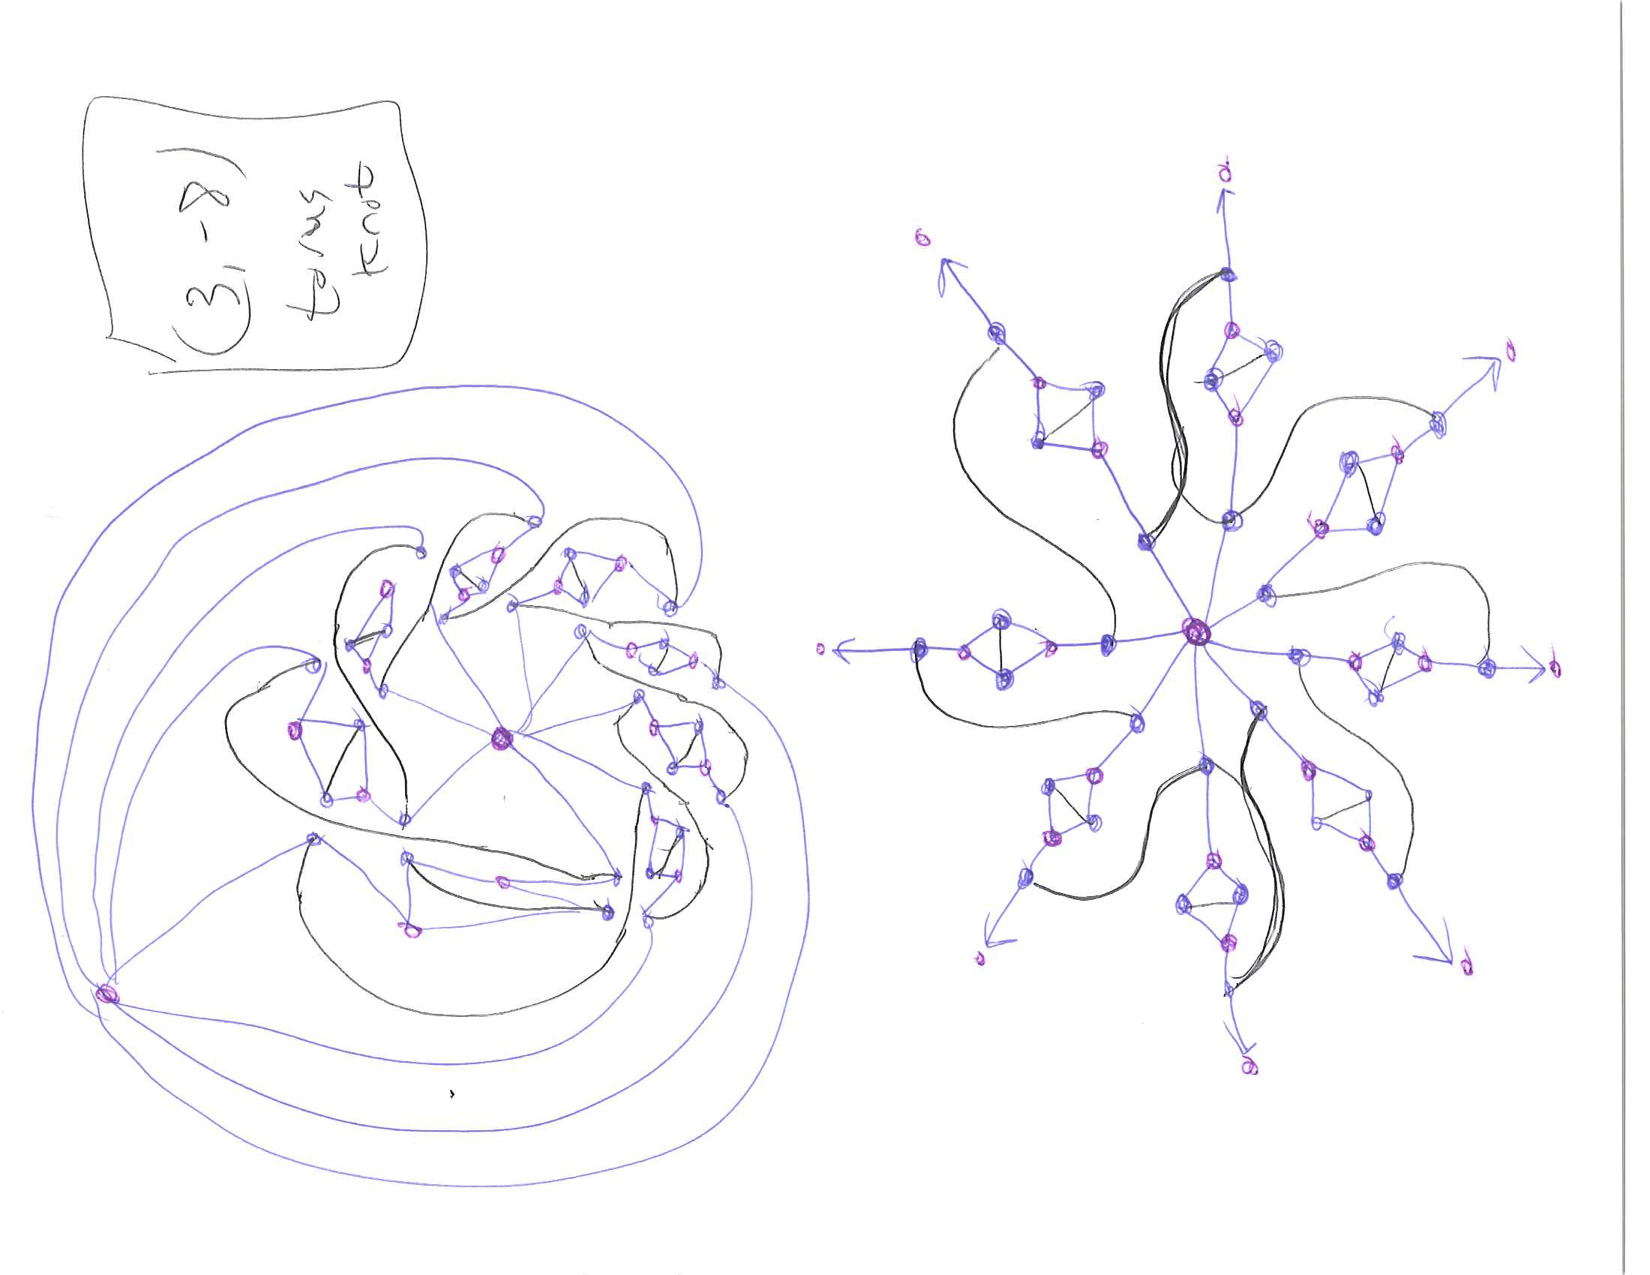 (3, -8)
torus
knot